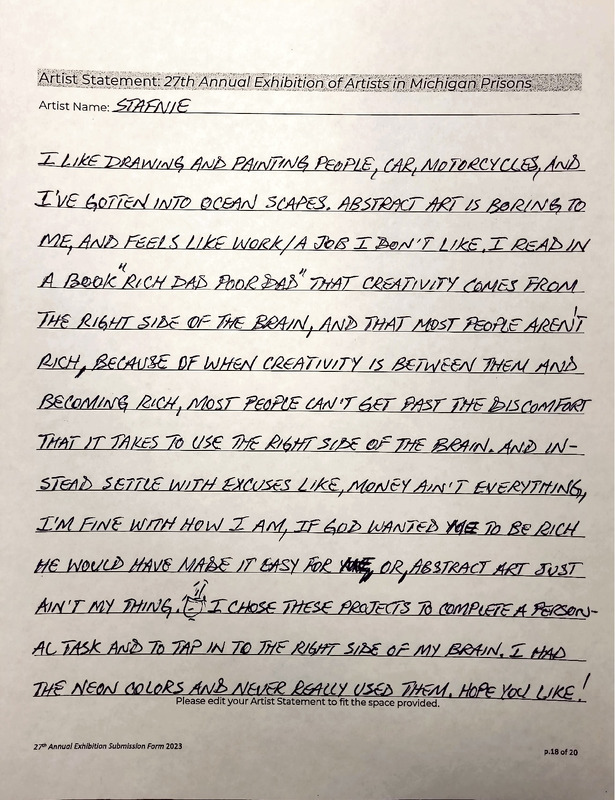 Artist Statement: 27th Annual Exhibition of Artists in Michigan Prisons
Artist Name: STAFNIE
I LIKE DRAWING AND PAINTING PEOPLE, CAR, MOTORCYCLES, AND
I'VE GOTTEN INTO OCEAN SCAPES. ABSTRACT ART IS BORING TO
ME, AND FEELS LIKE WORK/A JOB I DON'T LIKE. I READ IN
A BOOK "RICH DAD POOR DAD" THAT CREATIVITY COMES FROM
THE RIGHT SIDE OF THE BRAIN, AND THAT MOST PEOPLE AREN'T
RICH, BECAUSE OF WHEN CREATIVITY IS BETWEEN THEM AND
BECOMING RICH, MOST PEOPLE CAN'T GET PAST THE DISCOMFORT
THAT IT TAKES TO USE THE RIGHT SIDE OF THE BRAIN. AND IN-
STEAD SETTLE WITH EXCUSES LIKE, MONEY AIN'T EVERYTHING,
I'M FINE WITH HOW I AM, IF GOD WANTED ME TO BE RICH
HE WOULD HAVE MADE IT EASY FOR ME, OR, ABSTRACT ART JUST
AIN'T MY THING. I CHOSE THESE PROJECTS TO COMPLETE A PERSON-
AL TASK AND TO TAP IN TO THE RIGHT SIDE OF MY BRAIN. I HAD
THE NEON COLORS AND NEVER REALLY USED THEM. HOPE YOU LIKE!
Please edit your Artist Statement to fit the space provided.
27th Annual Exhibition Submission Form 2023
p.18 of 20